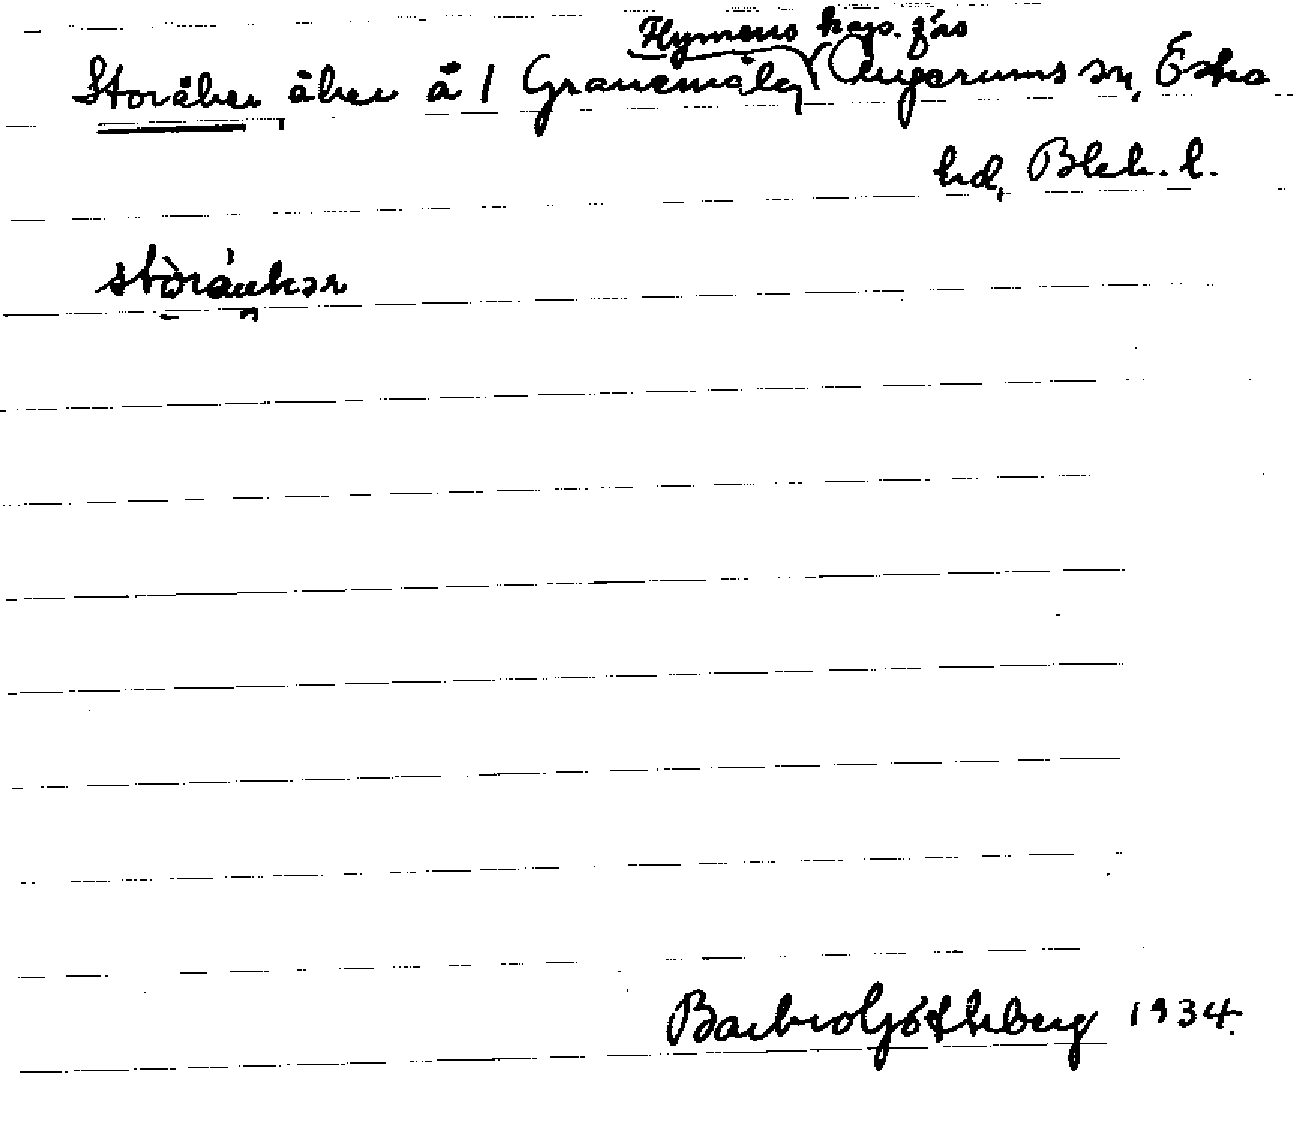 Flymens kaps. fjs
Storåker åker å 1 Granemåla, Augerums sn, Östra
hd, Blek. l.
stòráukər
Barbro Göthberg 1934.